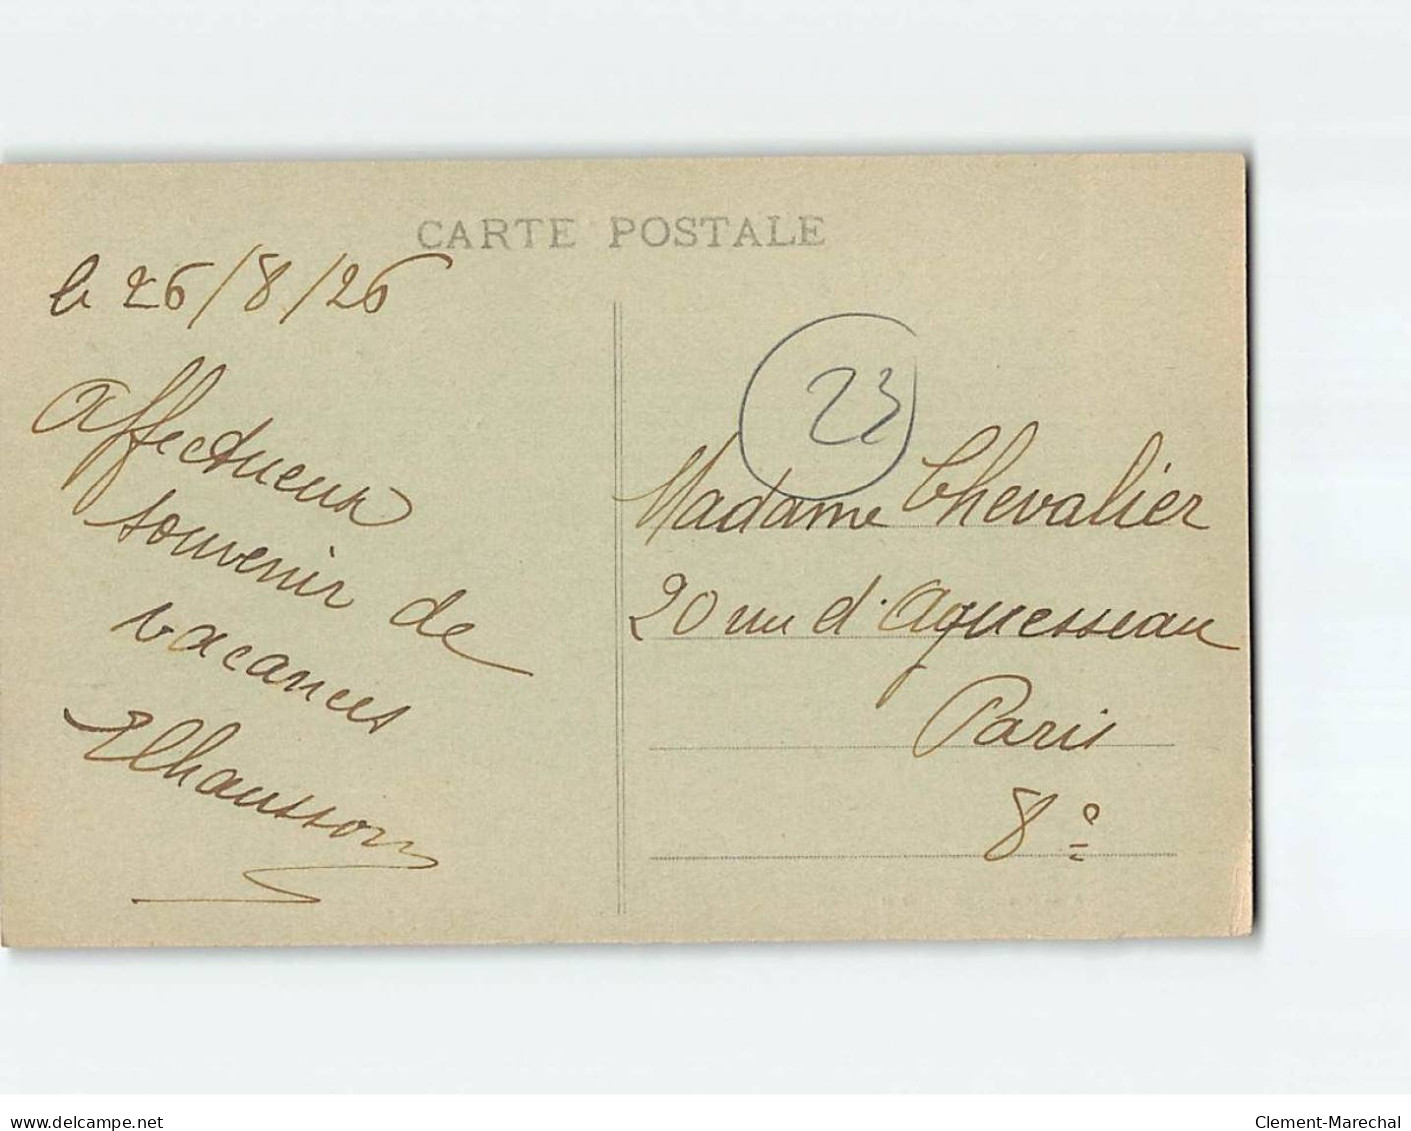 CARTE POSTALE
le 26/8/26
Affectueux
souvenir de
vacances
23
Madame Chevalier
20 rue d'Aguesseau
Paris
8e
delcampe.net
Clement-Marechal